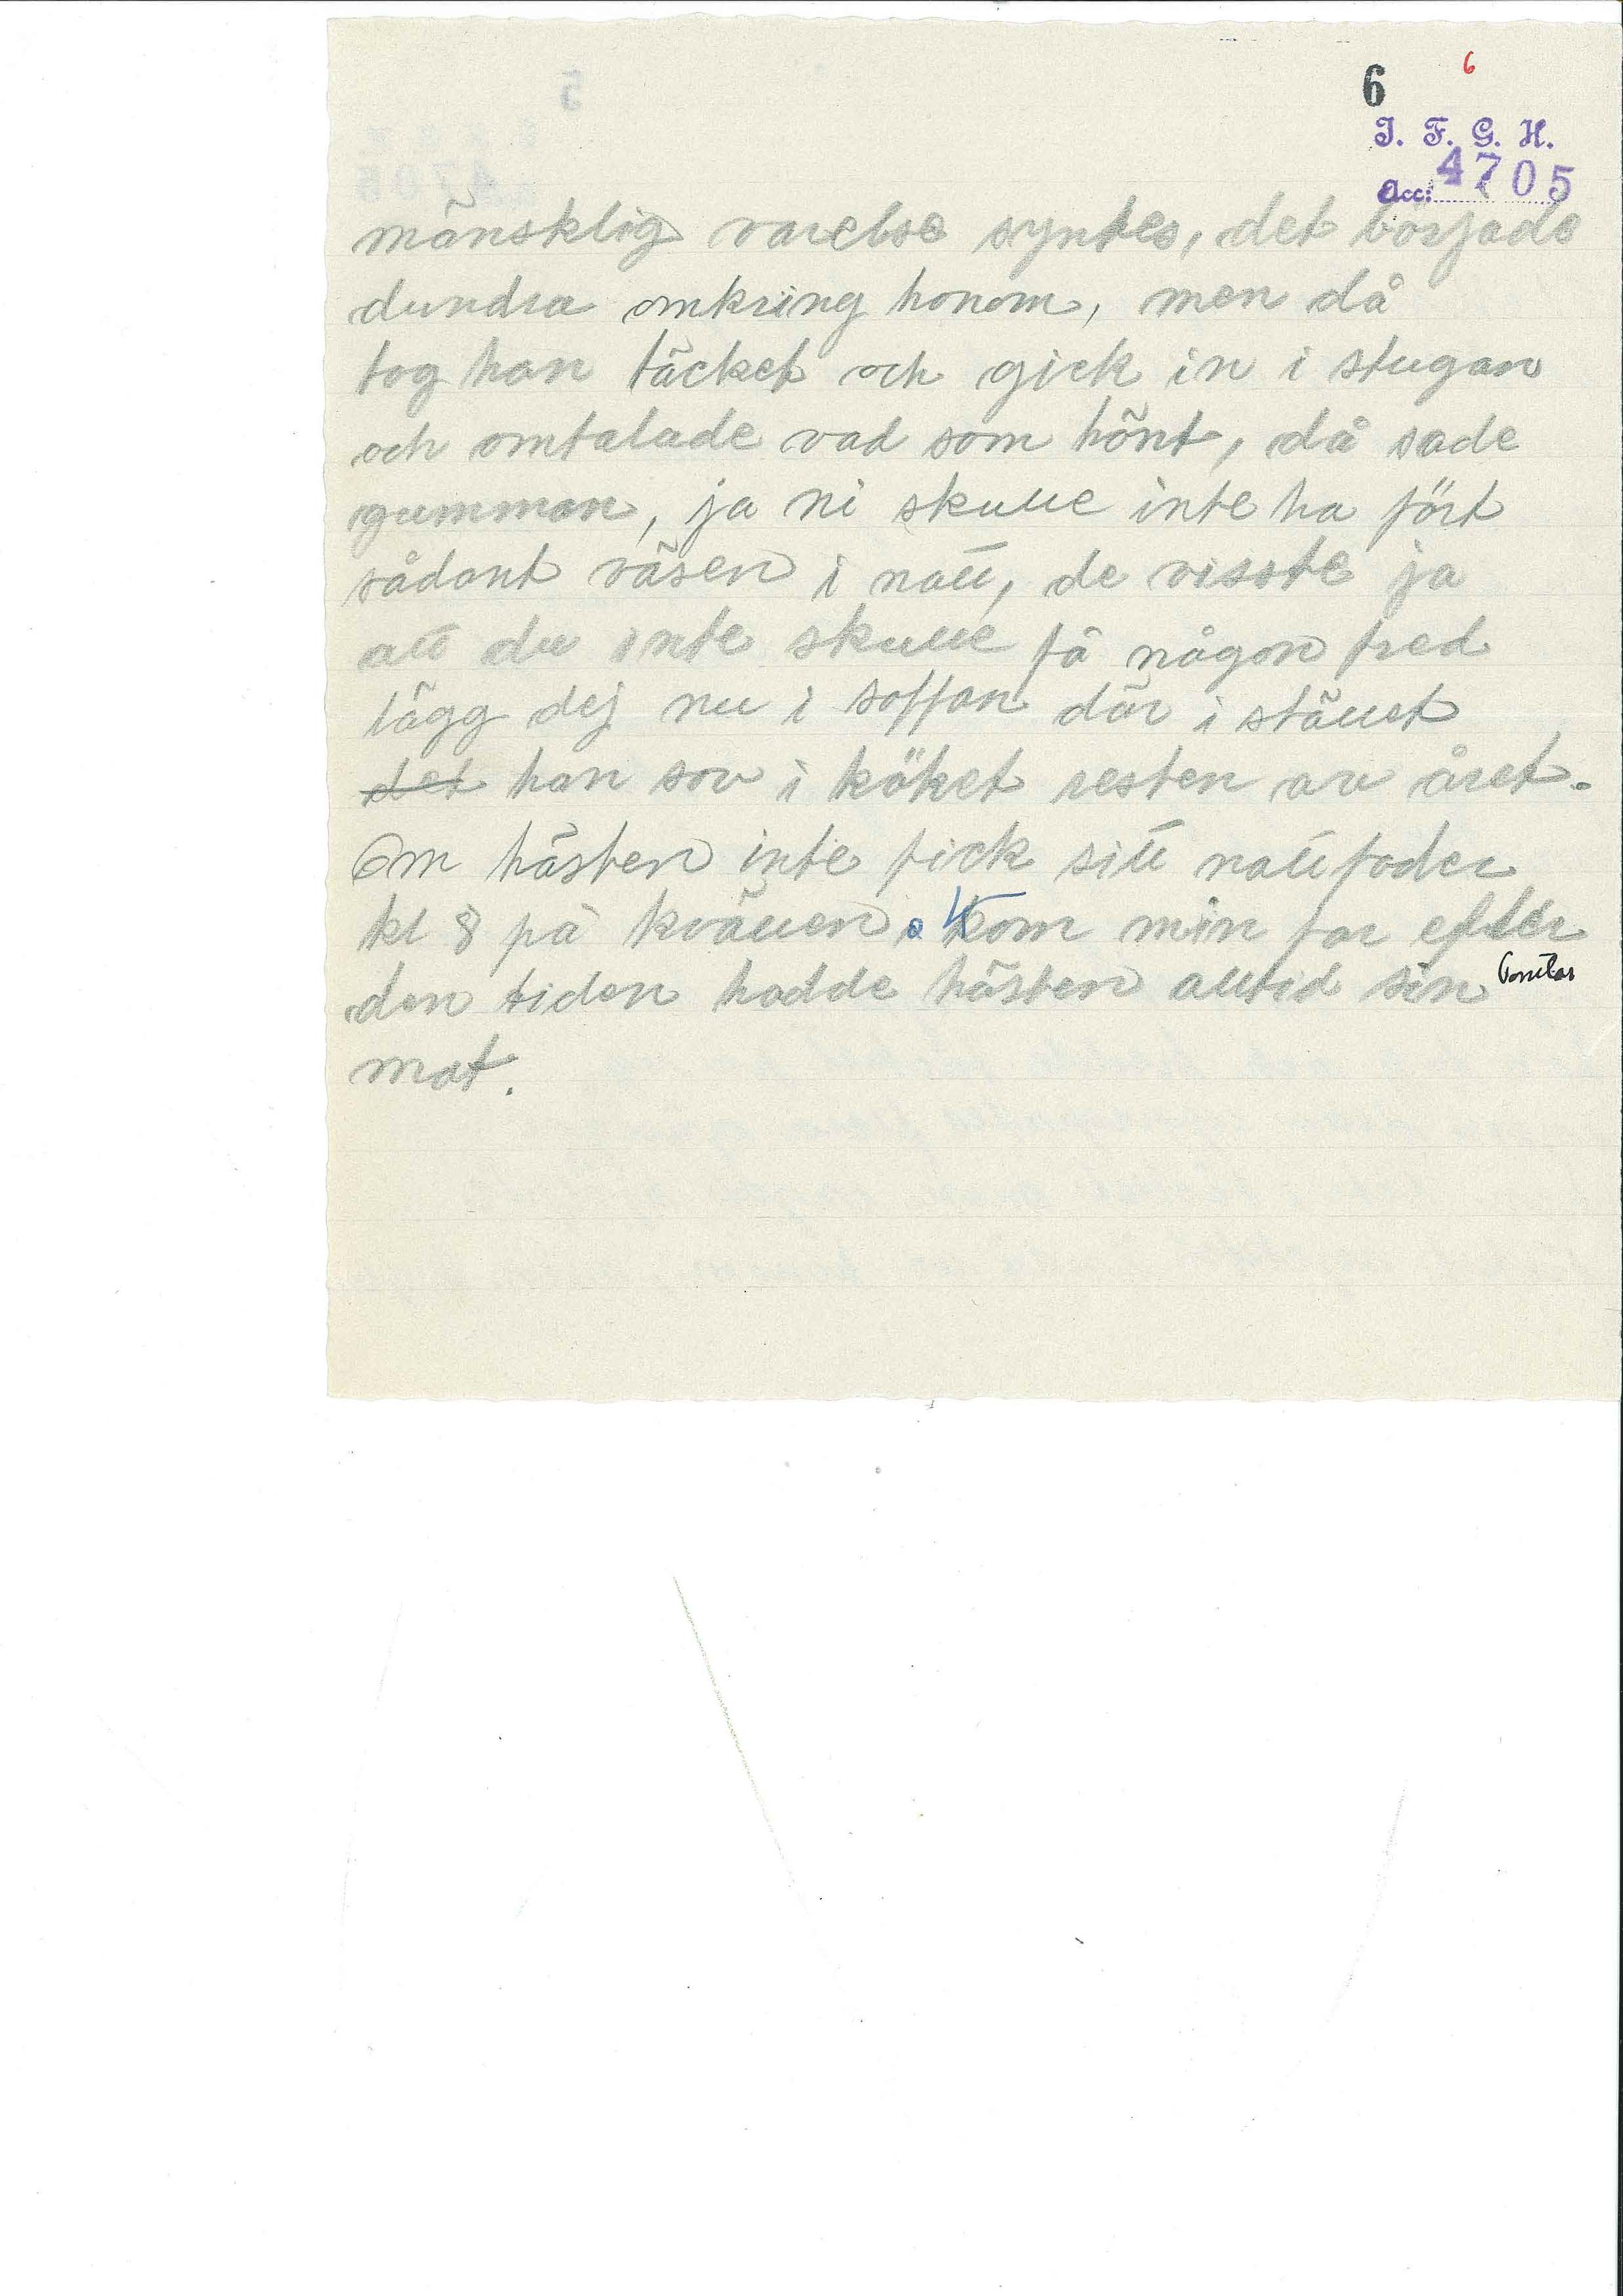 6 6
I. F. G. H.
Acc: 4705
mänsklig varelse syntes, det började
dundra omkring honom, men då
tog han täcket och gick in i stugan
och omtalade vad som hänt, då sade
gumman, ja ni skulle inte ha fört
sådant väsen i natt, de visste ja
att du inte skulle få någon fred
lägg dej nu i soffan där i stället
det han sov i köket resten av året.
Om hästen inte fick sitt nattfoder
kl 8 på kvällen kom min far efter
den tiden hadde hästen alltid sin
mat.